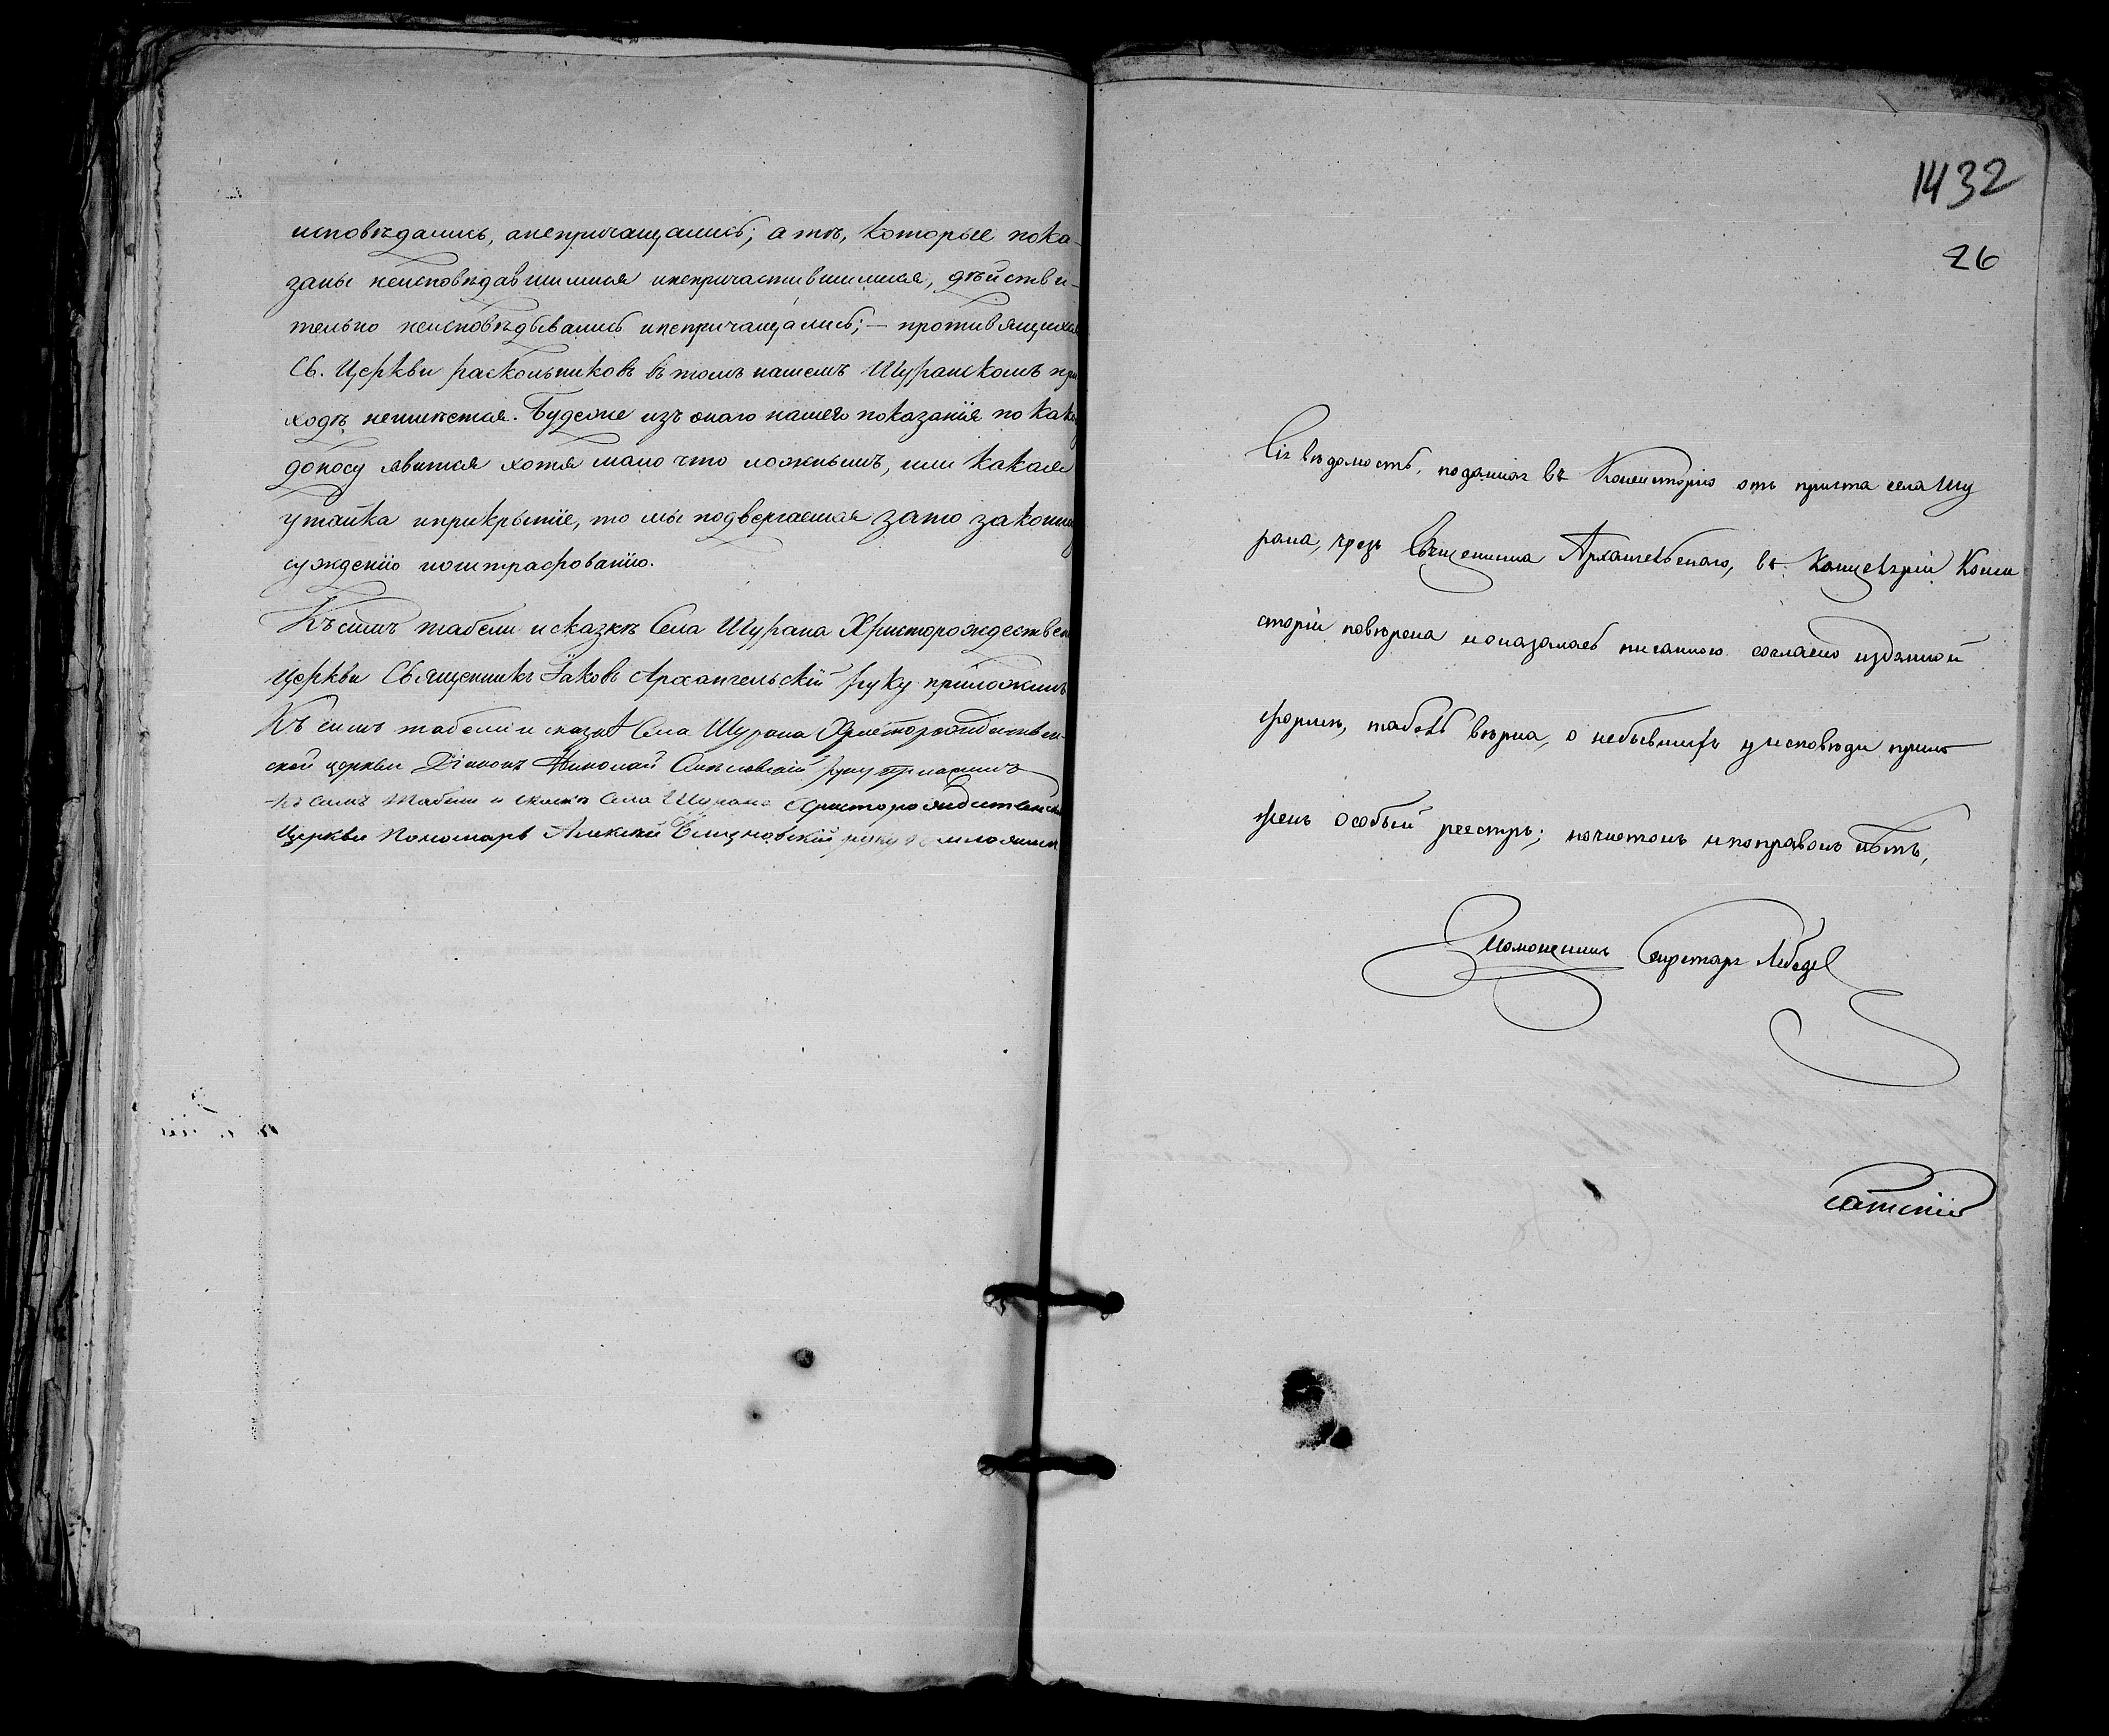 исповѣдались, анепричащались; а тѣ, которые пока-
заны неисповѣдавшимися инепричастившимися, дѣйстви-
тельно неисповѣдывались инепричащались; – противящихся
Св. Церкви раскольниковъ въ томъ нашемъ Шуранскомъ при
ходѣ неимѣется. Будеже изъ онаго нашего показанія по како
доносу явится хотя мало что ложнымъ, или какая
утайка иприкрытіе, то мы подвергаемся зато законно
сужденію иоштрафованію.
Къ симъ табели и сказкѣ Села Шурана Христорождествен
Церкви Священникъ Іаковъ Архангельскій руку приложилъ
Къ симъ табели и сказкѣ Села Шурана Христорождествен-
ской церкви Діаконъ Николай руку приложилъ
Къ симъ табели и сказкѣ Села Шурана Христорождественской
Церкви Пономарь Алексей руку приложилъ
1432
26
Сія вѣдомость, поданная въ Консисторію отъ причта села Шу
рана, чрезъ Священника Архангельскаго, въ Канцеляріи Конси
сторіи повѣрена иоказалась писанною согласно изданной
формѣ, табель вѣрна, о небывшихъ уисповѣди прило
женъ особый реестръ; почистокъ ипоправокъ нѣтъ,
Секретарь Лебедев